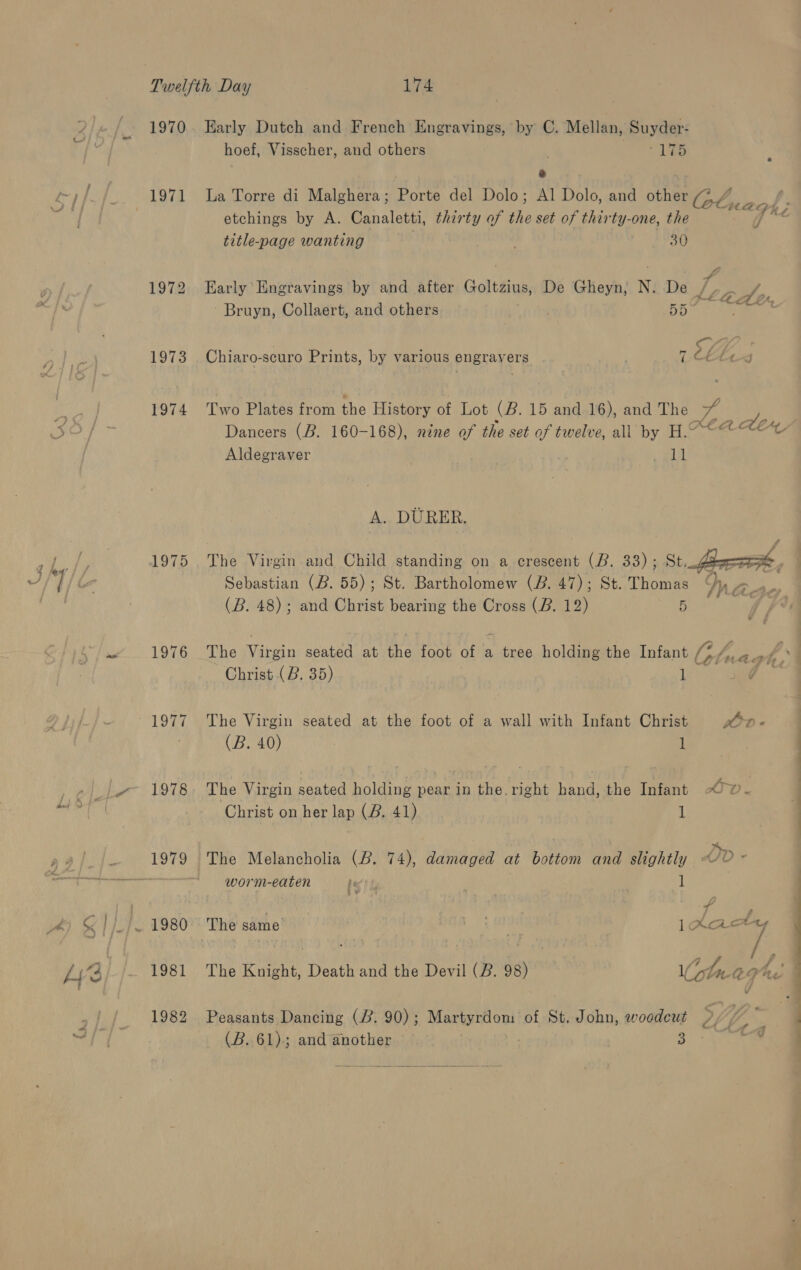 Twelfth Day 174
1970 Early Dutch and French Engravings, by C. Mellan, Suyder-
hoef, Visscher, and others 175
1971 La Torre di Malghera; Porte del Dolo; Al Dolo, and other Colnaghi
etchings by A. Canaletti, thirty of the set of thirty-one, the
title-page wanting 30
1972 Early Engravings by and after Goltzius, De Gheyn, N. De
Bruyn, Collaert, and others 55
1973 Chiaro-scuro Prints, by various engravers 7 Ellis
1974 Two Plates from the History of Lot (B. 15 and 16), and The
Dancers (B. 160-168), nine of the set of twelve, all by H.
Aldegraver 11
A. DÜRER.
1975 The Virgin and Child standing on a crescent (B. 33); St.
Sebastian (B. 55); St. Bartholomew (B. 47); St. Thomas
(B. 48); and Christ bearing the Cross (B. 12) 5
1976 The Virgin seated at the foot of a tree holding the Infant Colnaghi
Christ (B. 35) 1
1977 The Virgin seated at the foot of a wall with Infant Christ Do-
(B. 40) 1
1978 The Virgin seated holding pear in the right hand, the Infant Do-
Christ on her lap (B. 41) 1
1979 The Melancholia (B. 74), damaged at bottom and slightly Do-
worm-eaten 1
1980 The same 1
1981 The Knight, Death and the Devil (B. 98) 1 Colnaghi
1982 Peasants Dancing (B. 90); Martyrdom of St. John, woodcut
(B. 61); and another 3